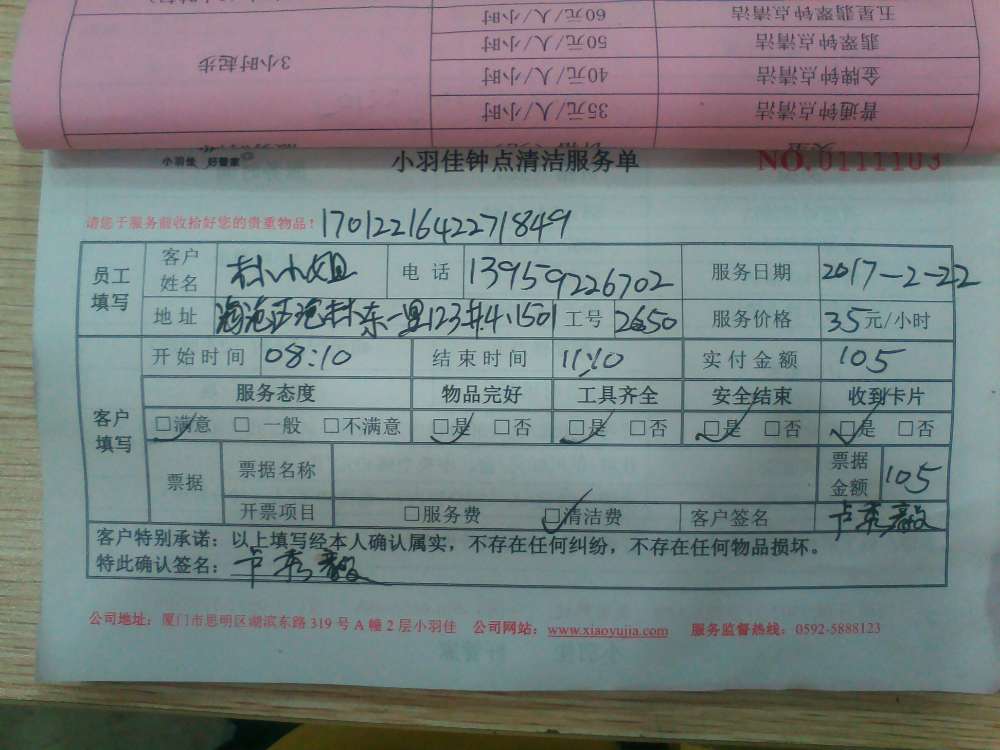 3小时起步
60元/人/小时
五星翡翠钟点清洁
50元/人/小时
翡翠钟点清洁
40元/人/小时
金牌钟点清洁
35元/人/小时
普通钟点清洁
小羽佳 好管家
小羽佳钟点清洁服务单
NO.0111103
请您于服务前收拾好您的贵重物品！
17012216422271849
员工填写
客户姓名 林小姐 电话 13959226702 服务日期 2017-2-22
地址 一里123#4.1501 工号 2650 服务价格 35元/小时
客户填写
开始时间 08:10 结束时间 11:10 实付金额 105
服务态度 物品完好 工具齐全 安全结束 收到卡片
□满意 □一般 □不满意 □是 □否 □是 □否 □是 □否 □是 □否
票据 票据名称 票据金额 105
开票项目 □服务费 □清洁费 客户签名
客户特别承诺：以上填写经本人确认属实，不存在任何纠纷，不存在任何物品损坏。
特此确认签名：
公司地址：厦门市思明区湖滨东路319号A幢2层小羽佳 公司网站：www.xiaoyujia.com 服务监督热线：0592-5888123